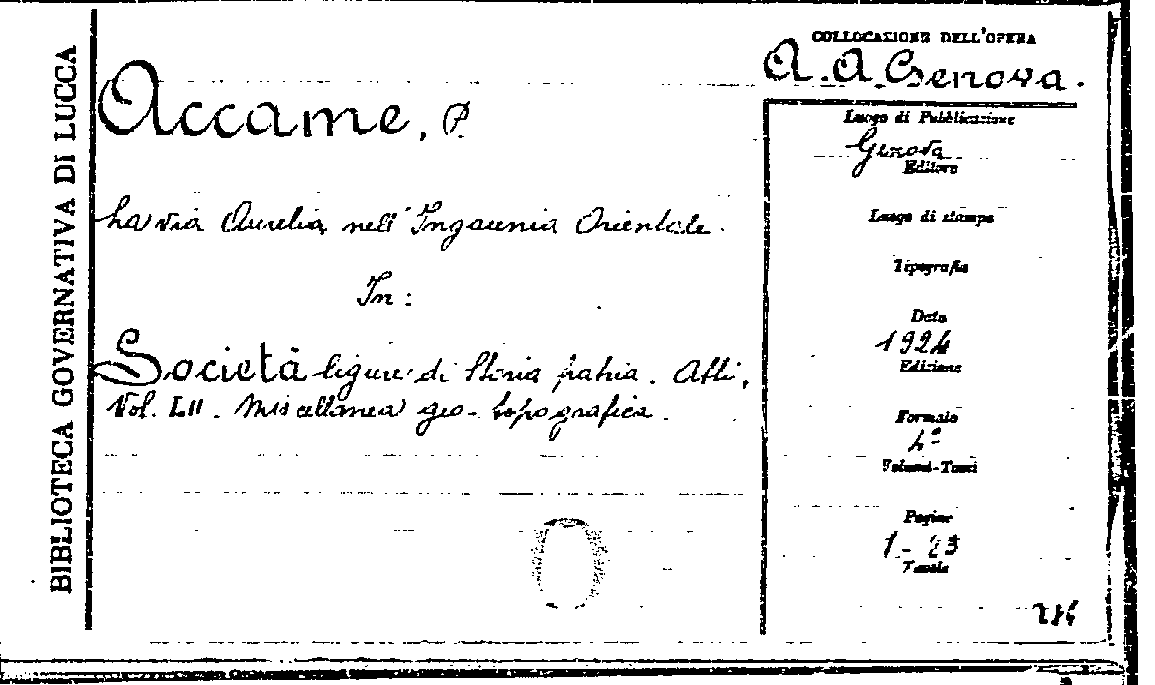 BIBLIOTECA GOVERNATIVA DI LUCCA
COLLOCAZIONE DELL'OPERA
A. A. Genova.
Accame, P.
La via Aurelia nell'Ingaunia Orientale.
In:
Società ligure di Storia patria. Atti,
Vol. LII. Miscellanea geo-topografica.
Luogo di Pubblicazione
Genova
Editore
Luogo di stampa
Tipografia
Data
1924
Edizione
Formato
4°
Volumi-Tomi
Pagine
1-23
Tavole